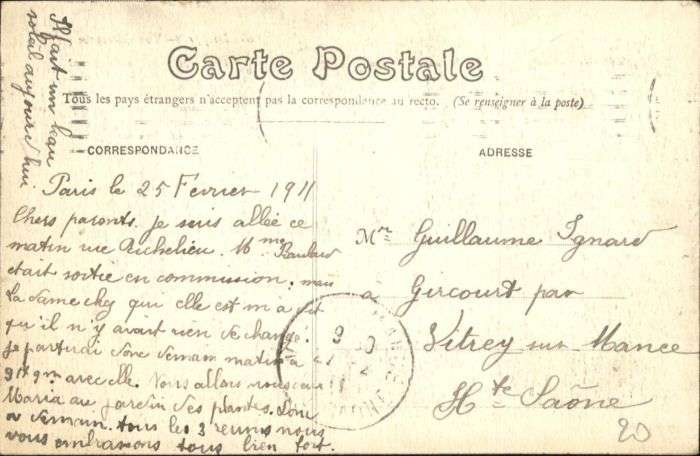 Il fait un beau
soleil aujourd'hui
Carte Postale
Tous les pays étrangers n'acceptent pas la correspondance au recto. (Se renseigner à la poste)
CORRESPONDANCE
ADRESSE
Paris le 25 Février 1911
Chers parents. Je suis allée ce
matin rue Richelieu. Mme
etait sortie en commission, mais
la dame chez qui elle est m a dit
qu'il n'y avait rien de changé.
je partirai donc demain matin à
9h avec elle. Nous allons nous
Maria au jardin des plantes. Donc
a demain. tous les 3 reunis nous
vous embrassons tous bien fort.
Mr Guillaume Ignard
à Gircourt par
Vitrey sur Mance
Hte Saône
20